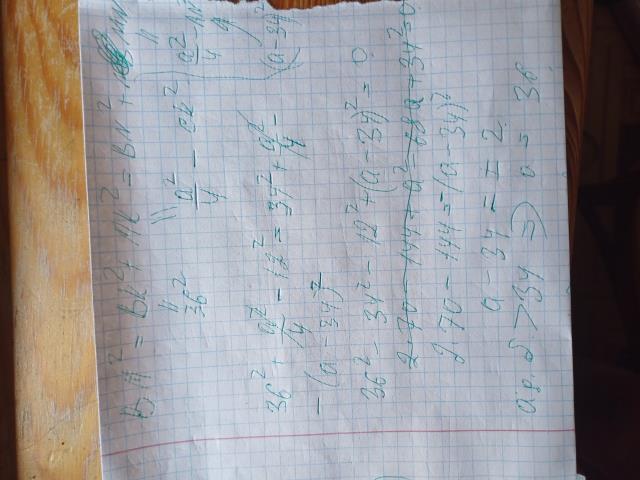 BM² = BK² + MK² = BN² + MN²
36² a²/4 − CK² a²/4 − AN²
(a − 34)²
36² + a²/4 − 12² = 34² + a²/4 −
− (a − 34)²
36² − 34² − 12² + (a − 34)² = 0
2·70 − 144 + a² − 68a + 34² = 0
2·70 − 144 = −(a − 34)²
a − 34 = ± 2
> 34 ⇒ a = 36